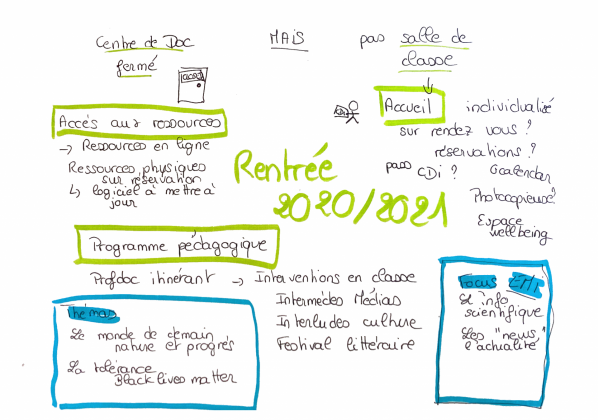 Centre de Doc
fermé
MAIS
pas salle de
classe
Accés aux ressources
→ Ressources en ligne
Ressources physiques
sur réservation
↳ logiciel à mettre à
jour
Rentrée
2020/2021
Accueil individualisé
sur rendez vous ?
réservations ?
pass CDi ? Gcalendar
Photocopieuse ?
Espace
wellbeing
Programme pédagogique
Profdoc itinérant → Interventions en classe
Intermedes Médias
Interludes culture
Festival littéraire
Thémas
Le monde de demain
nature et progrés
La tolérance
Black lives matter
Focus EMI
L'info
scientifique
Les "news"
l'actualité